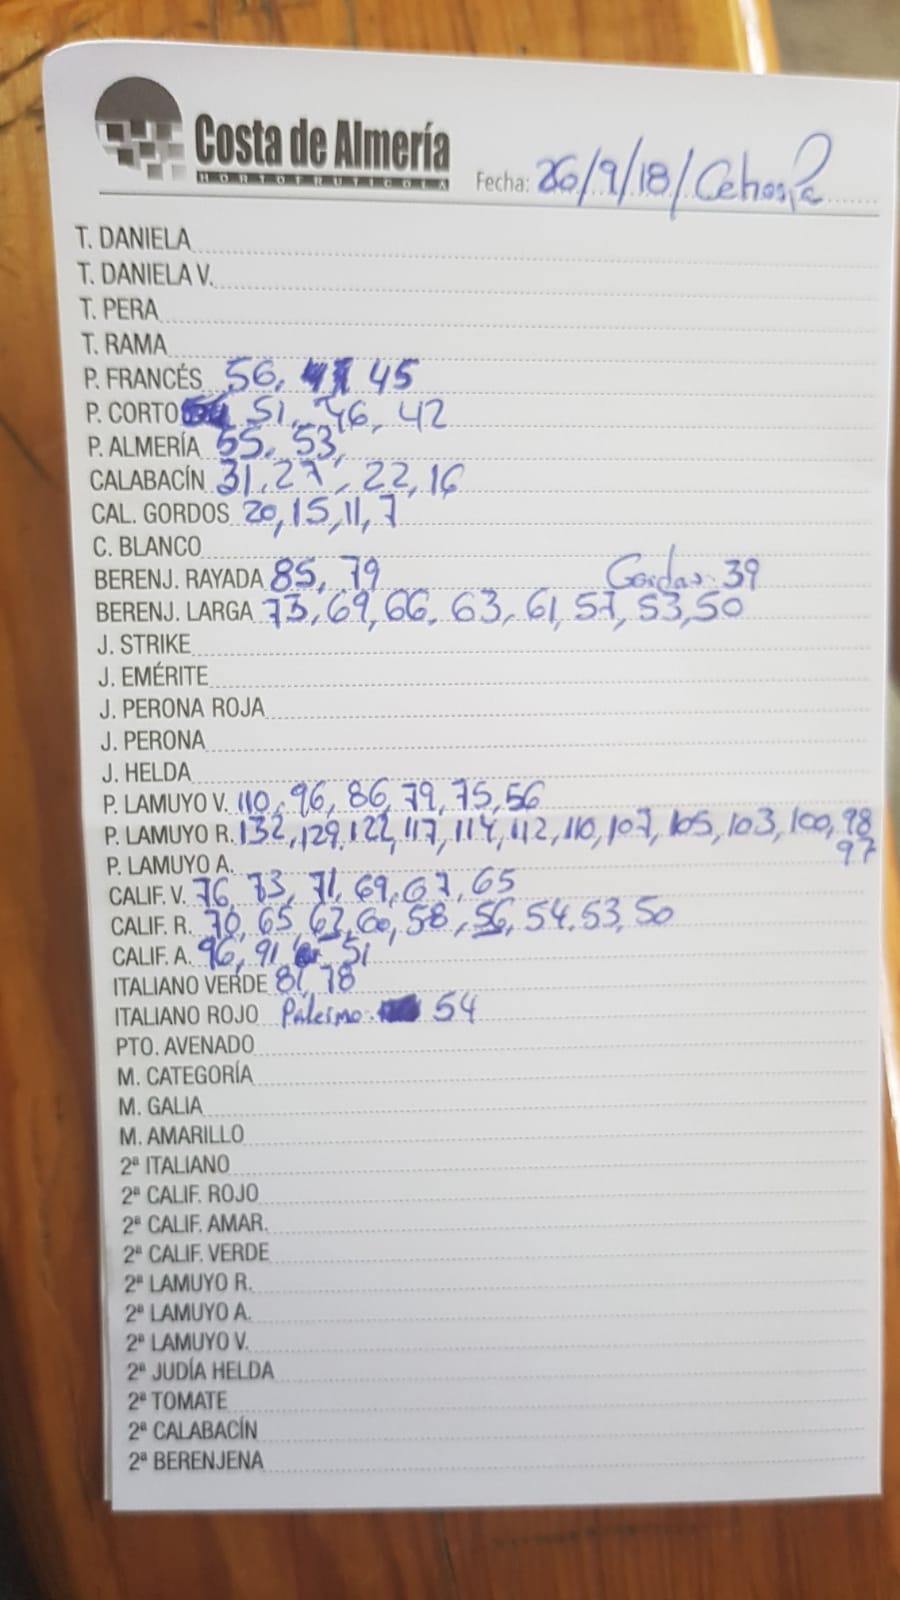 Costa de Almería
HORTOFRUTICOLA
Fecha: 26/9/18/Cehorpa
T. DANIELA
T. DANIELA V.
T. PERA
T. RAMA
P. FRANCÉS 56, 45
P. CORTO 51, 46, 42
P. ALMERÍA 55, 53,
CALABACÍN 31, 27, 22, 16
CAL. GORDOS 20, 15, 11, 7
C. BLANCO
BERENJ. RAYADA 85, 79 Gordas 39
BERENJ. LARGA 73, 69, 66, 63, 61, 57, 53, 50
J. STRIKE
J. EMÉRITE
J. PERONA ROJA
J. PERONA
J. HELDA
P. LAMUYO V. 110, 96, 86, 79, 75, 56
P. LAMUYO R. 132, 129, 122, 117, 114, 112, 110, 107, 105, 103, 100, 98
97
P. LAMUYO A.
CALIF. V. 76, 73, 71, 69, 67, 65
CALIF. R. 70, 65, 63, 60, 58, 56, 54, 53, 50
CALIF. A. 96, 91 51
ITALIANO VERDE 81, 78
ITALIANO ROJO Palermo 54
PTO. AVENADO
M. CATEGORÍA
M. GALIA
M. AMARILLO
2ª ITALIANO
2ª CALIF. ROJO
2ª CALIF. AMAR.
2ª CALIF. VERDE
2ª LAMUYO R.
2ª LAMUYO A.
2ª LAMUYO V.
2ª JUDÍA HELDA
2ª TOMATE
2ª CALABACÍN
2ª BERENJENA